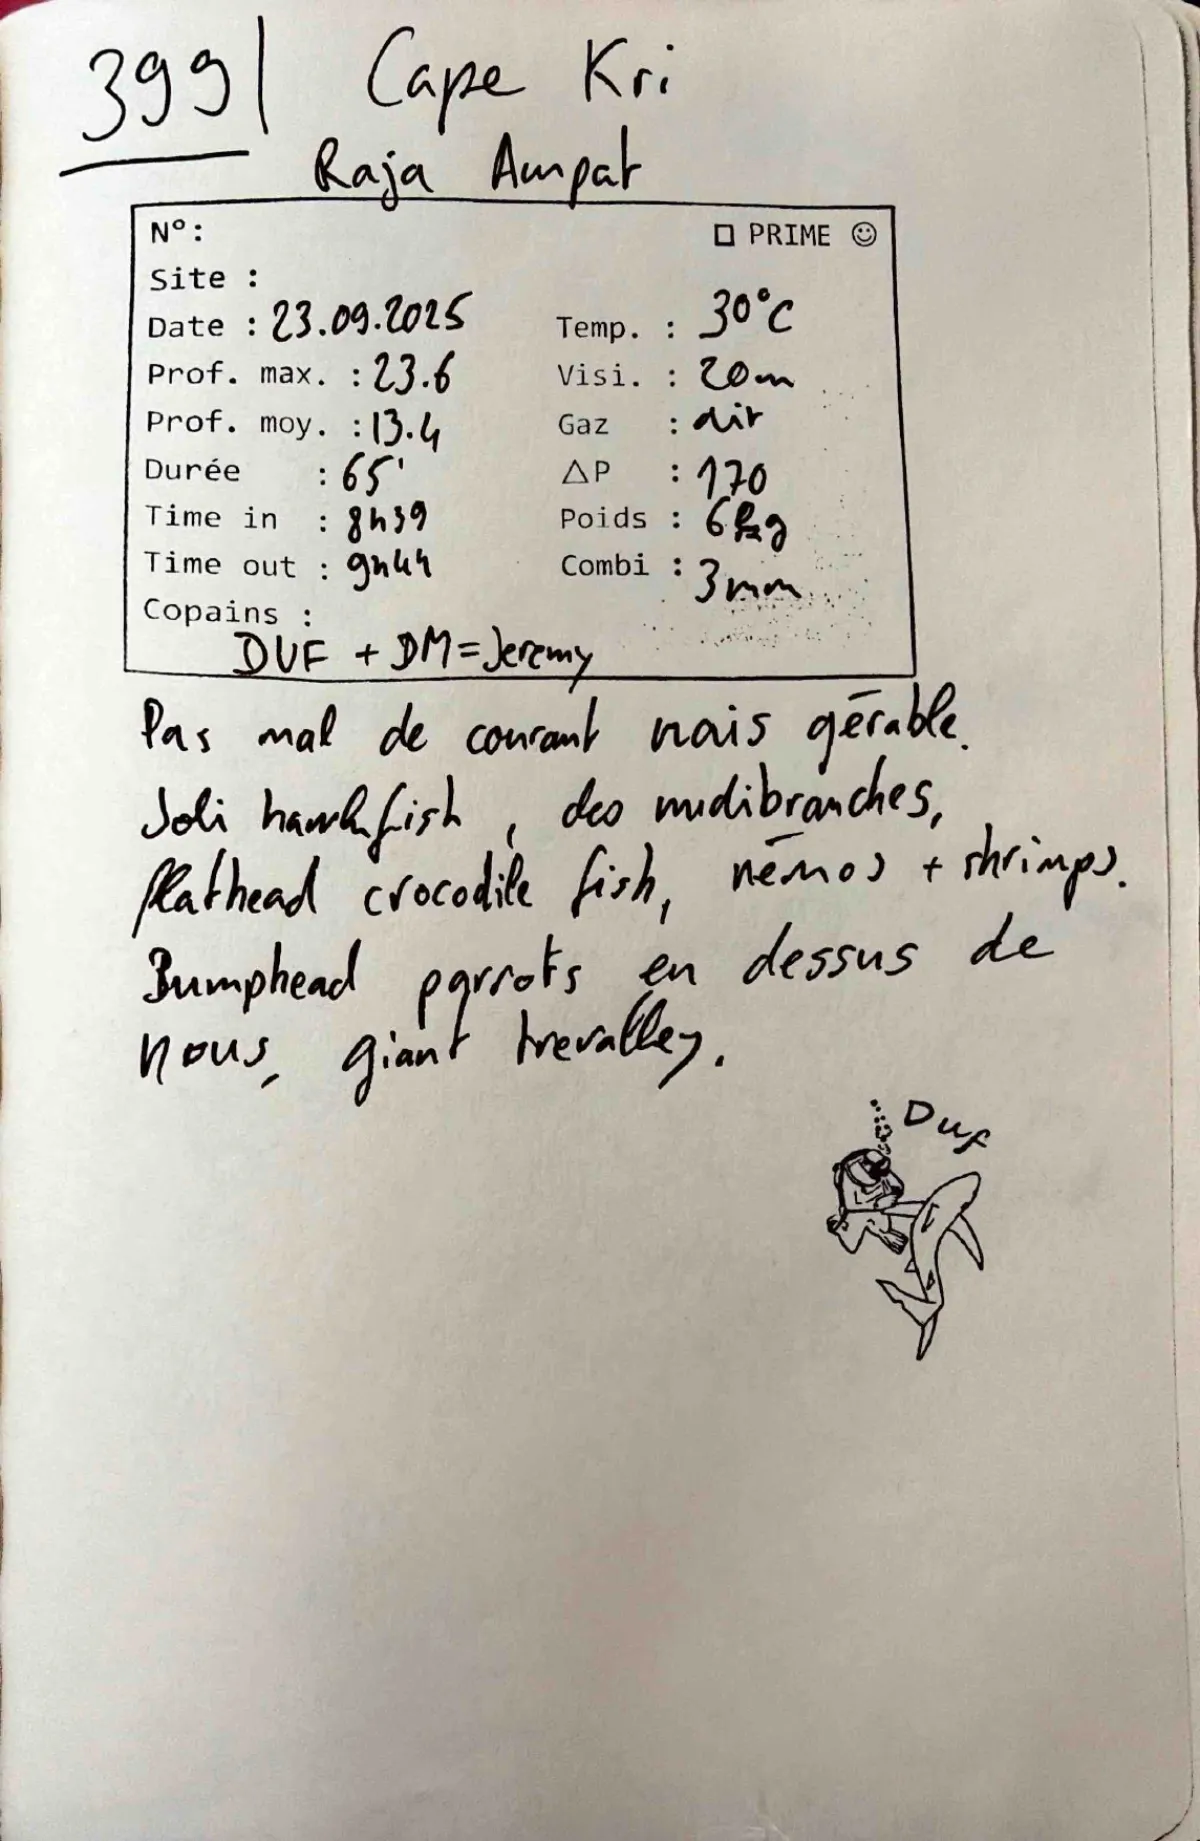 399| Cape Kri
Raja Ampat
N°: □ PRIME ☺
Site :
Date : 23.09.2025 Temp. : 30°C
Prof. max. : 23.6 Visi. : 20m
Prof. moy. : 13.4 Gaz : air
Durée : 65' △P : 170
Time in : 8h39 Poids : 6kg
Time out : 9h44 Combi : 3mm
Copains :
DUF + DM=Jeremy
Pas mal de courant mais gérable.
Joli hawkfish, des nudibranches,
flathead crocodile fish, némos + shrimps.
Bumphead parrots en dessus de
nous, giant trevalley.
Duf